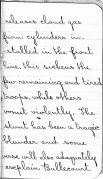 releases cloud gas
from cylinders in-
stalled in the front
line, this sickens the
few remaining and tired
troops, while others
vomit violently. The
stunt has been a tragic
blunder and some
verse will also adequately
explain Bullecourt.